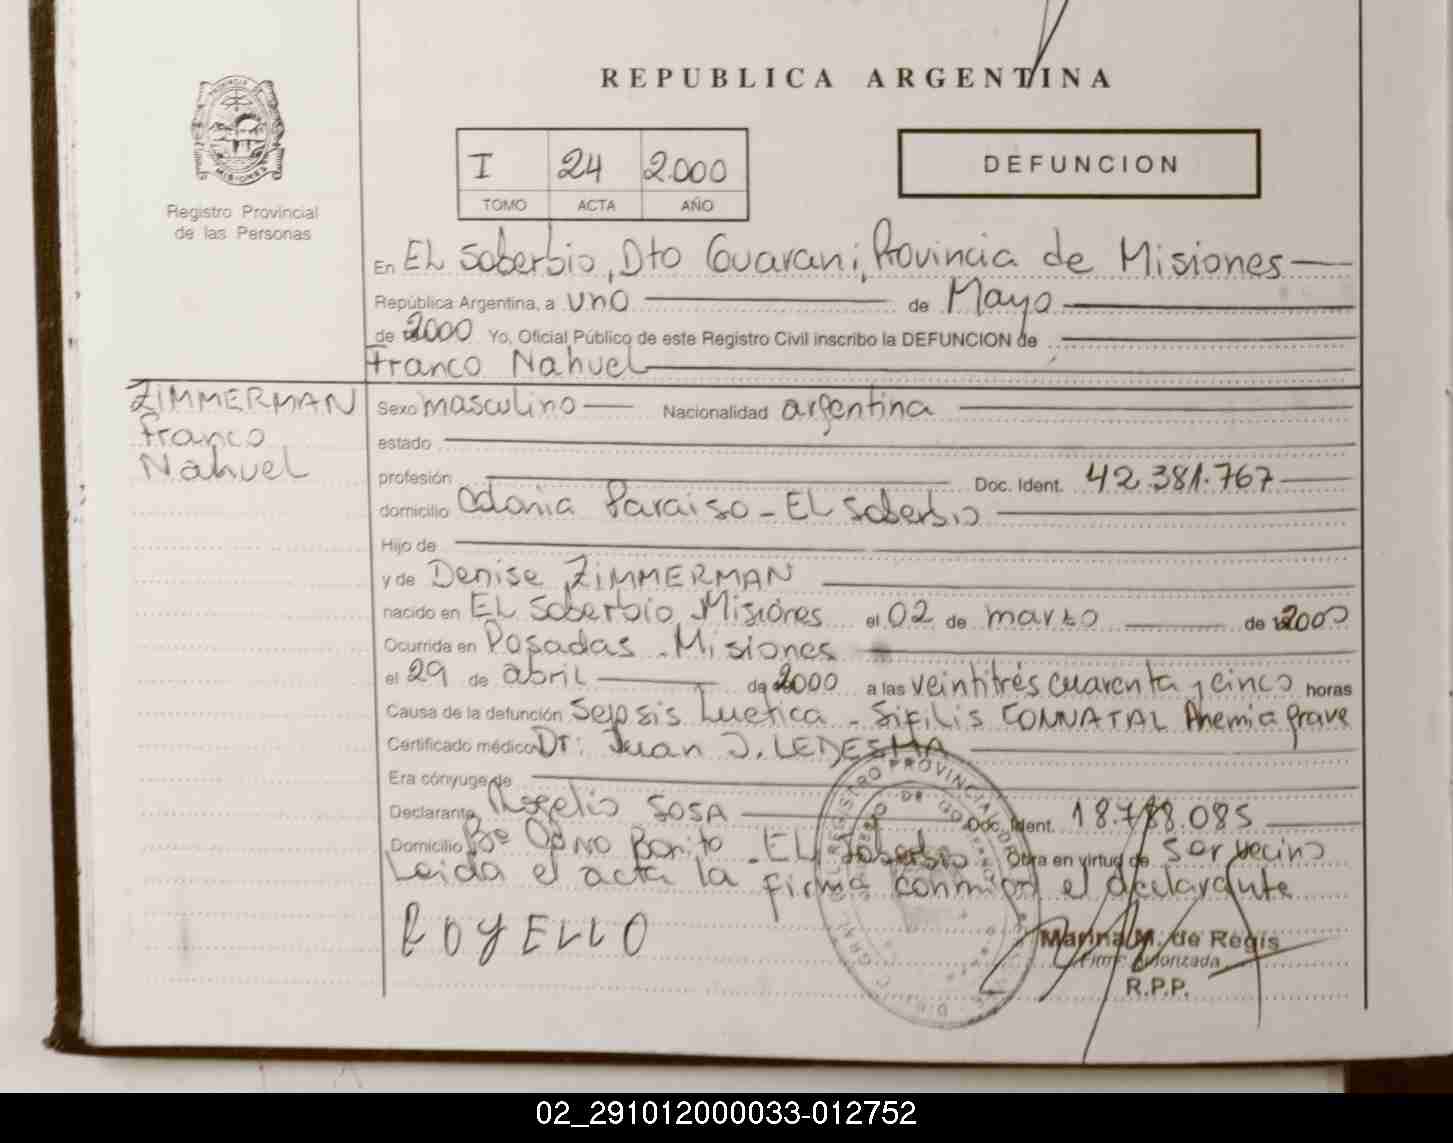 REPUBLICA ARGENTINA
I 24 2.000
TOMO ACTA AÑO
DEFUNCION
Registro Provincial
de las Personas
En EL Soberbio, Dto Guaraní, Provincia de Misiones
República Argentina, a uno de Mayo
de 2000 Yo, Oficial Público de este Registro Civil inscribo la DEFUNCION de
Franco Nahuel
ZIMMERMAN
Franco
Nahuel
Sexo masculino Nacionalidad argentina
estado
profesión Doc. Ident. 42.381.767
domicilio Colonia Paraiso - EL Soberbio
Hijo de
y de Denise ZIMMERMAN
nacido en EL Soberbio, Misiones el 02 de marzo de 2000
Ocurrida en Posadas - Misiones
el 29 de abril de 2000 a las veintitrés cuarenta y cinco horas
Causa de la defunción Sepsis Luetica - Sifilis CONNATAL Anemia grave
Certificado médico Dr: Juan J. LEDESMA
Era cónyuge de
Declarante Rogelio SOSA Doc. Ident. 18.788.085
Domicilio Bº Bonito - EL Soberbio Obra en virtud de ser vecino
Leida el acta la firma conmigo el declarante
ROYELLO
Marina M. de Regis
Firma Autorizada
R.P.P.
02_291012000033-012752